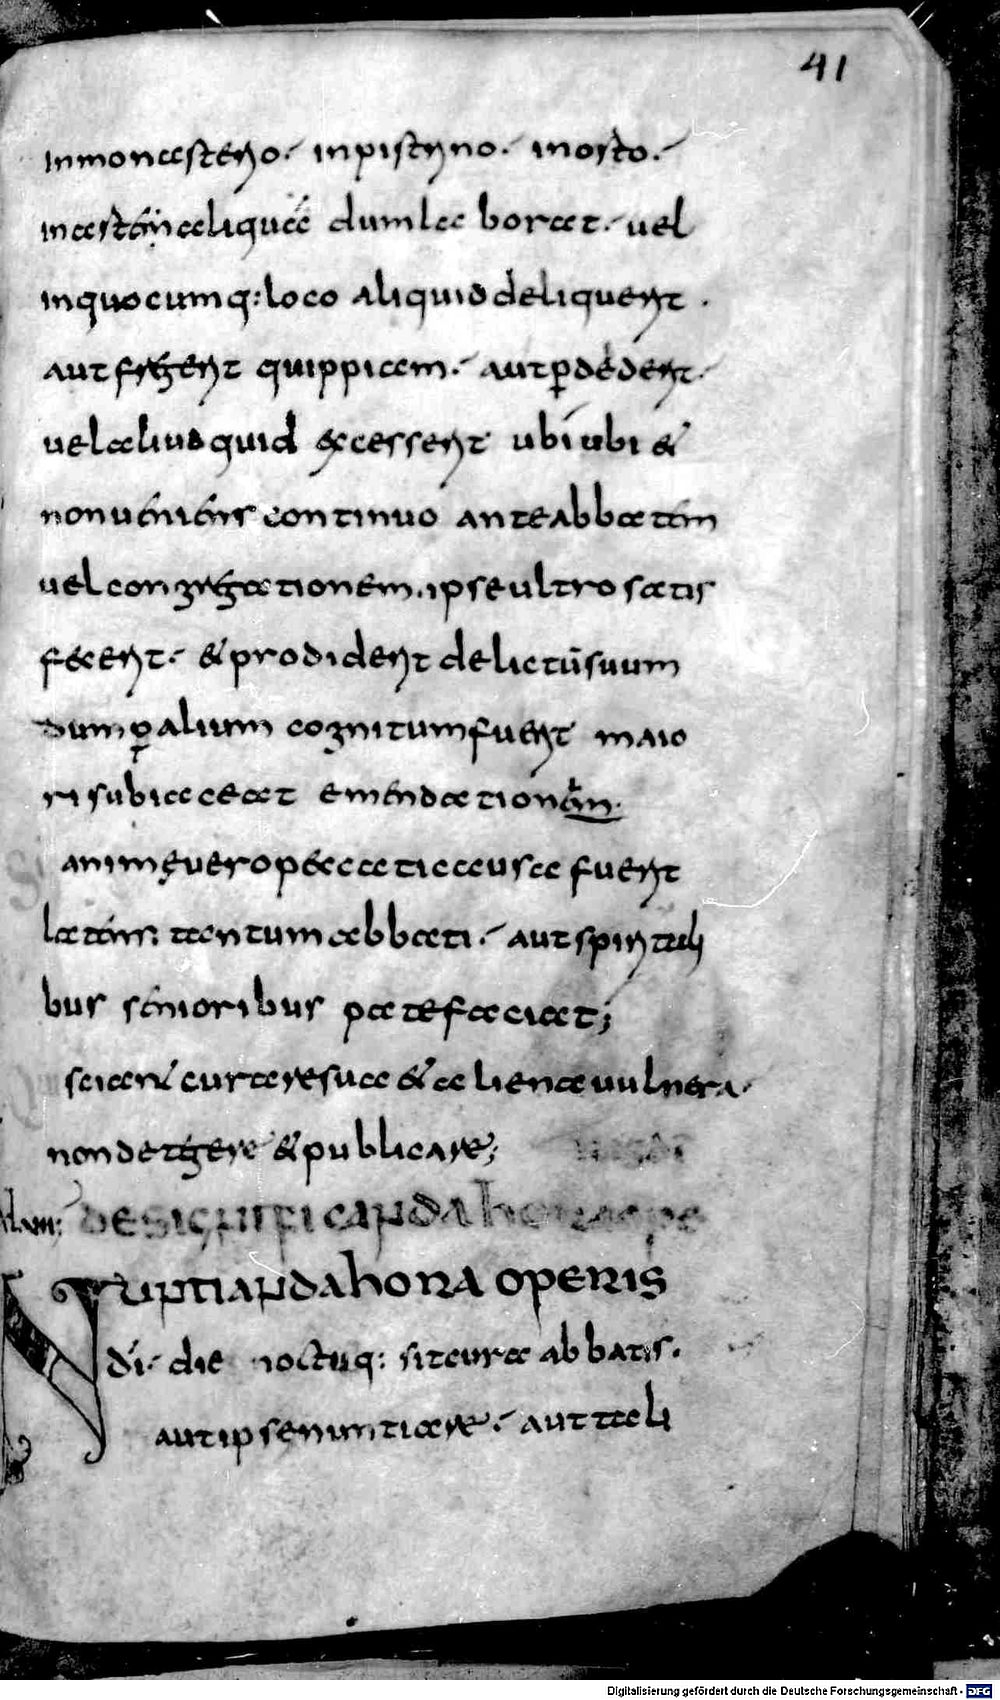 41
inmonasterio. inpistrino. inorto.
inarte aliqua dum laborat. uel
inquocumq: loco aliquid deliquerit.
aut fregerit quippiam. aut pdederit.
uel aliud quid excesserit ubi ubi &
non ueniens continuo ante abbatem
uel congregationem. ipse ultro satis
fecerit. & prodiderit delictū suum
dum palium cognitum fuerit maio
ri subiaceat emendationem.
animę uero peccati causa fuerit
latens. tantum abbati. aut spiritali
bus senioribus patefaciat;
sciant curare sua & aliena uulnera.
non detegere & publicare;
DE SIGNIFICANDA hora
Nuntianda hora operis
dī. die noctuq: sit cura abbatis.
aut ipse nuntiare. aut tali
Digitalisierung gefördert durch die Deutsche Forschungsgemeinschaft - DFG